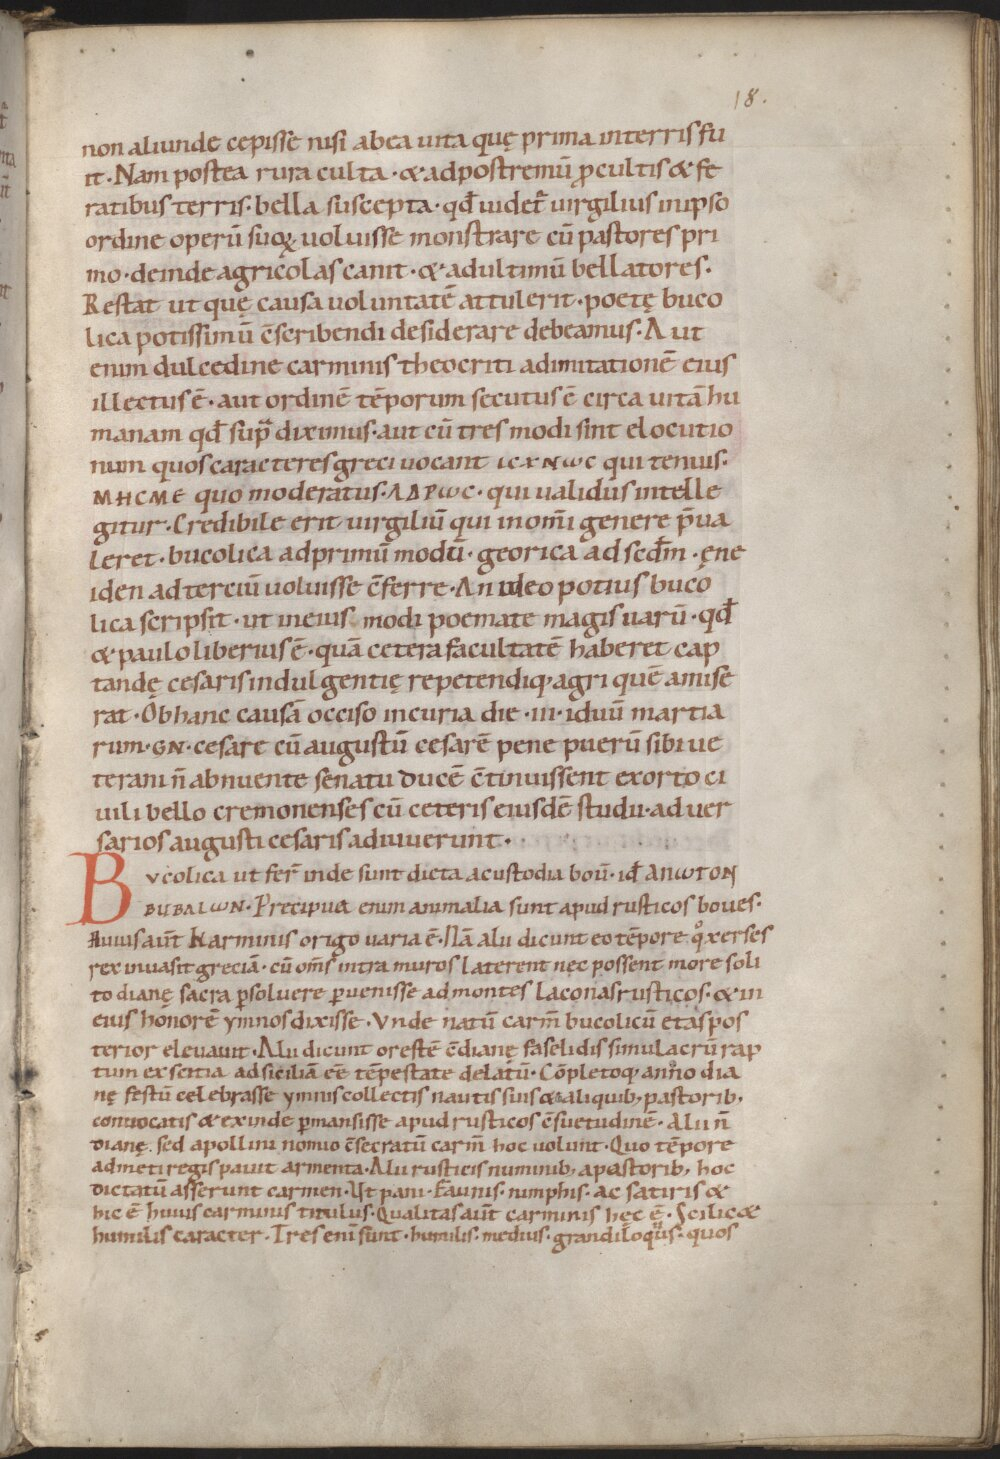 18.
non aliunde cepisse nisi abea uita quę prima interris fu
it · Nam postea rura culta · & ad postremū ꝓ cultis & fe
ratibus terris · bella suscepta · qđ uidet᷑ uirgilius inipso
ordine operū suoꝝ uoluisse monstrare cū pastores pri
mo · deinde agricolas canit · & adultimū bellatores ·
Restat ut quę causa uoluntatē attulerit · poetę buco
lica potissimū c̄scribendi desiderare debeamus · Aut
enim dulcedine carminis theocriti adimitationē eius
illectus ē · aut ordinē tēporum secutus ē circa uitā hu
manam qđ sup̄ diximus · aut cū tres modi sint elocutio
num quos caracteres greci uocant ιcxΝωc qui tenuis ·
ΜΗCΜΕ quo moderatus · ΛΔΡωC · qui ualidus intelle
gitur · Credibile erit uirgiliū qui inom̄i genere p̄ua
leret · bucolica adprimū modū · georica ad scđm · ęne
iden ad terciū uoluisse c̄ferre · An ideo potius buco
lica scripsit · ut ineius modi poemate magis uarū · qđ
& paulo liberius ē · quā cetera facultatē haberet cap
tandę cesaris indulgentię repetendiq; agri quē amise
rat · Obhanc causā occiso incuria die · iii · iduū martia
rum · GN · cesare cū augustū cesarē pene puerū sibi ue
terani n̄ abnuente senatu ducē c̄tinuissent exorto ci
uili bello cremonenses cū ceteris eiusdē studii · aduer
sarios augusti cesaris adiuuerunt ·
Bvcolica ut fer̄ inde sunt dicta acustodia boū · iđ ΑΠωΤΟΝ
BUBALωN · Precipua enim animalia sunt apud rusticos boues ·
Huius aūt karminis origo uaria ē · Nā alii dicunt eo tēpore qͦ xerses
rex inuasit greciā · cū om̄s intra muros laterent nec possent more soli
to dianę sacra ꝑsoluere ꝑuenisse ad montes laconas rusticos · & in
eius honorē ymnos dixisse · Vnde natū carm̄ bucolicū etas pos
terior eleuauit · Alii dicunt orestē c̄ dianę faselidis simulacrū rap
tum ex scitia ad siciliā eē tēpestate delatū · Cōpletoq; anno dia
nę festū celebrasse ymnis collectis nautis suis & aliquib; pastorib;
conuocatis & exinde ꝑmansisse apud rusticos c̄suetudinē · Alii n̄
dianę · sed apollini nomio c̄secratū carm̄ hoc uolunt · Quo tēpore
admeti regis pauit armenta · Alii rusticis numinib; apastorib; hoc
dictatū asserunt carmen · Ut pani · Faunis · nimphis · ac satiris &
hic ē huius carminis titulus · Qualitas aūt carminis hęc ē · Scilic&
humilis caracter · Tres enī sunt · humilis · medius · grandiloqus · quos